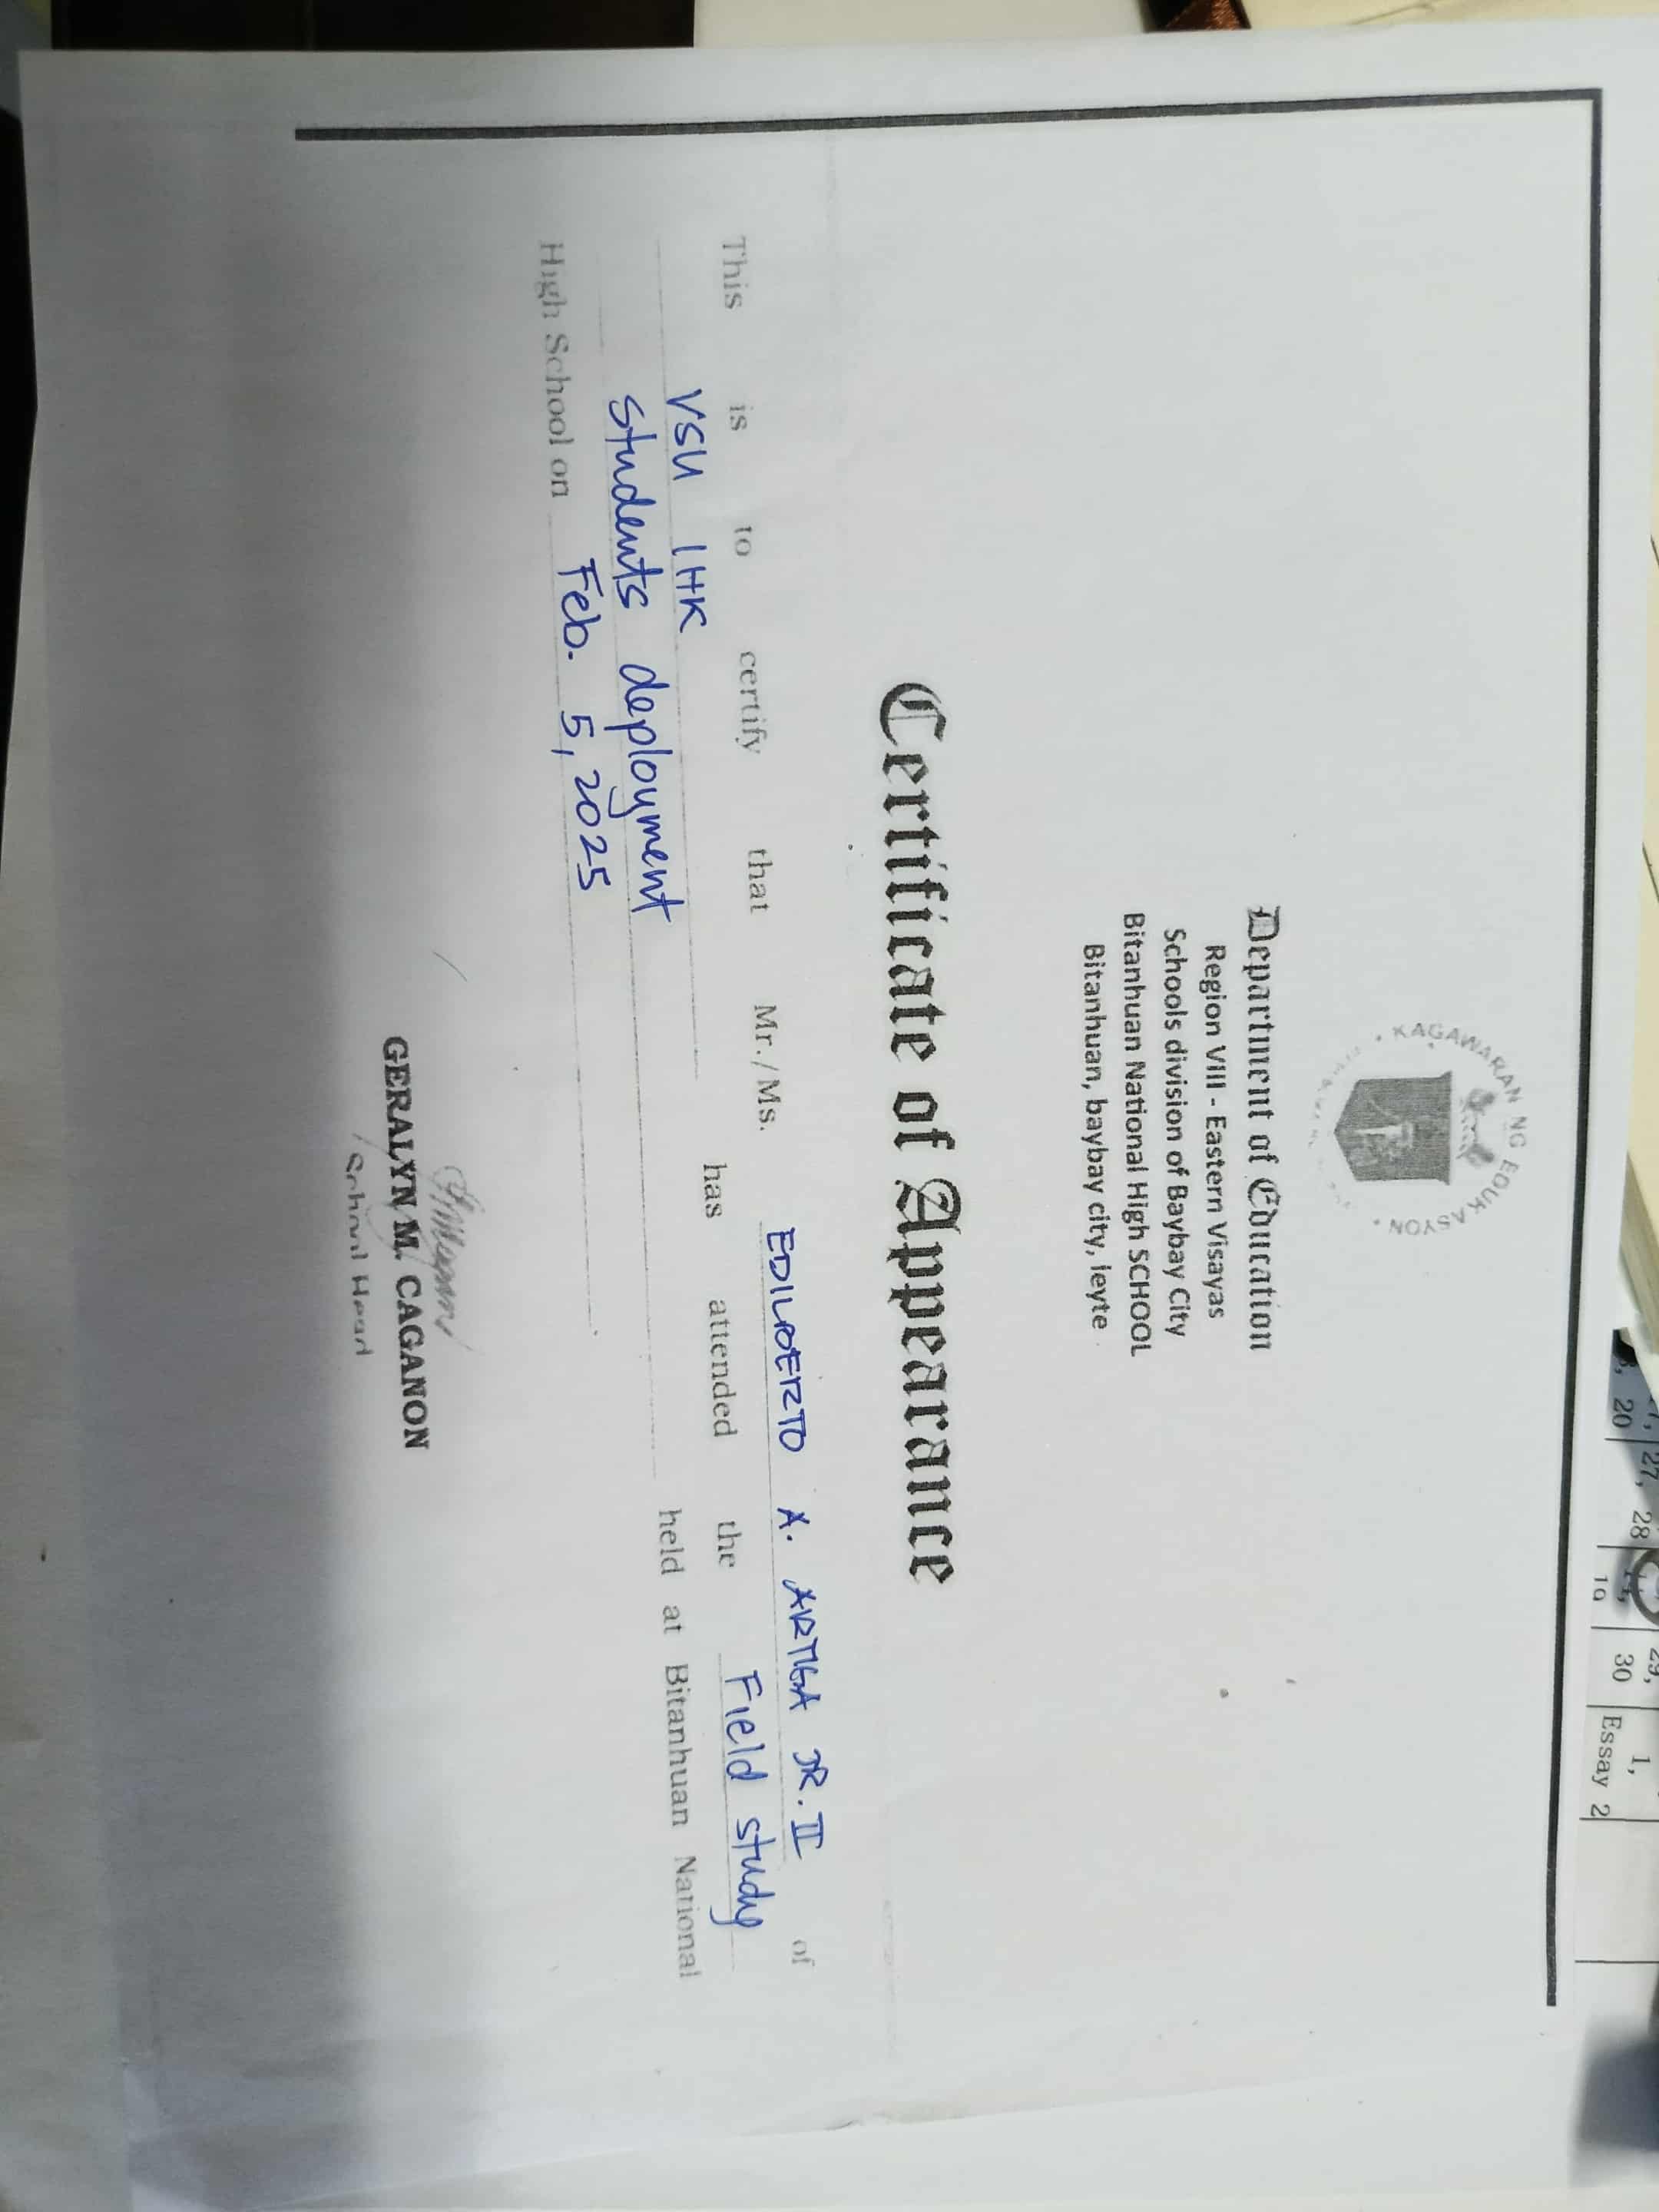 KAGAWARAN NG EDUKASYON
Department of Education
Region VIII - Eastern Visayas
Schools division of Baybay City
Bitanhuan National High SCHOOL
Bitanhuan, baybay city, leyte
Certificate of Appearance
This is to certify that Mr./Ms. EDILBERTO A. ARTIGA JR. II of
VSU IHK has attended the Field study
students deployment held at Bitanhuan National
High School on Feb. 5, 2025
GERALYN M. CAGANON
School Head
27, 28
29, 30
1,
20
19
Essay 2